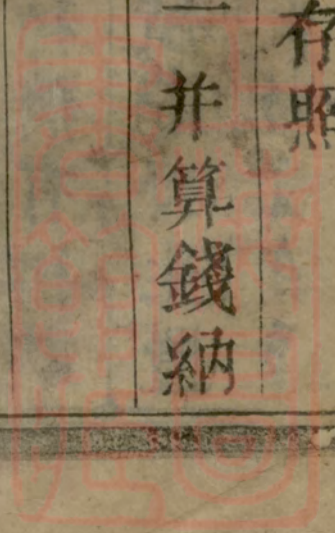 存照
一并算錢納